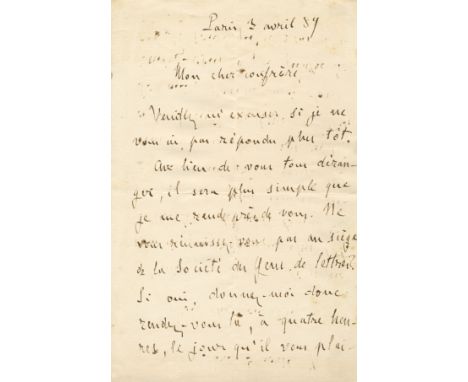 Paris 3 avril 89
Mon cher confrère,
Veuillez m'excuser, si je ne
vous ai pas répondu plus tôt.
Au lieu de vous tous déran-
ger, il sera plus simple que
je me rende près de vous. Ne
vous réunissez-vous pas au siège
de la Société des Gens de lettres.
Si oui, donnez-moi donc
rendez-vous là, à quatre heu-
res, le jour qu'il vous plai-